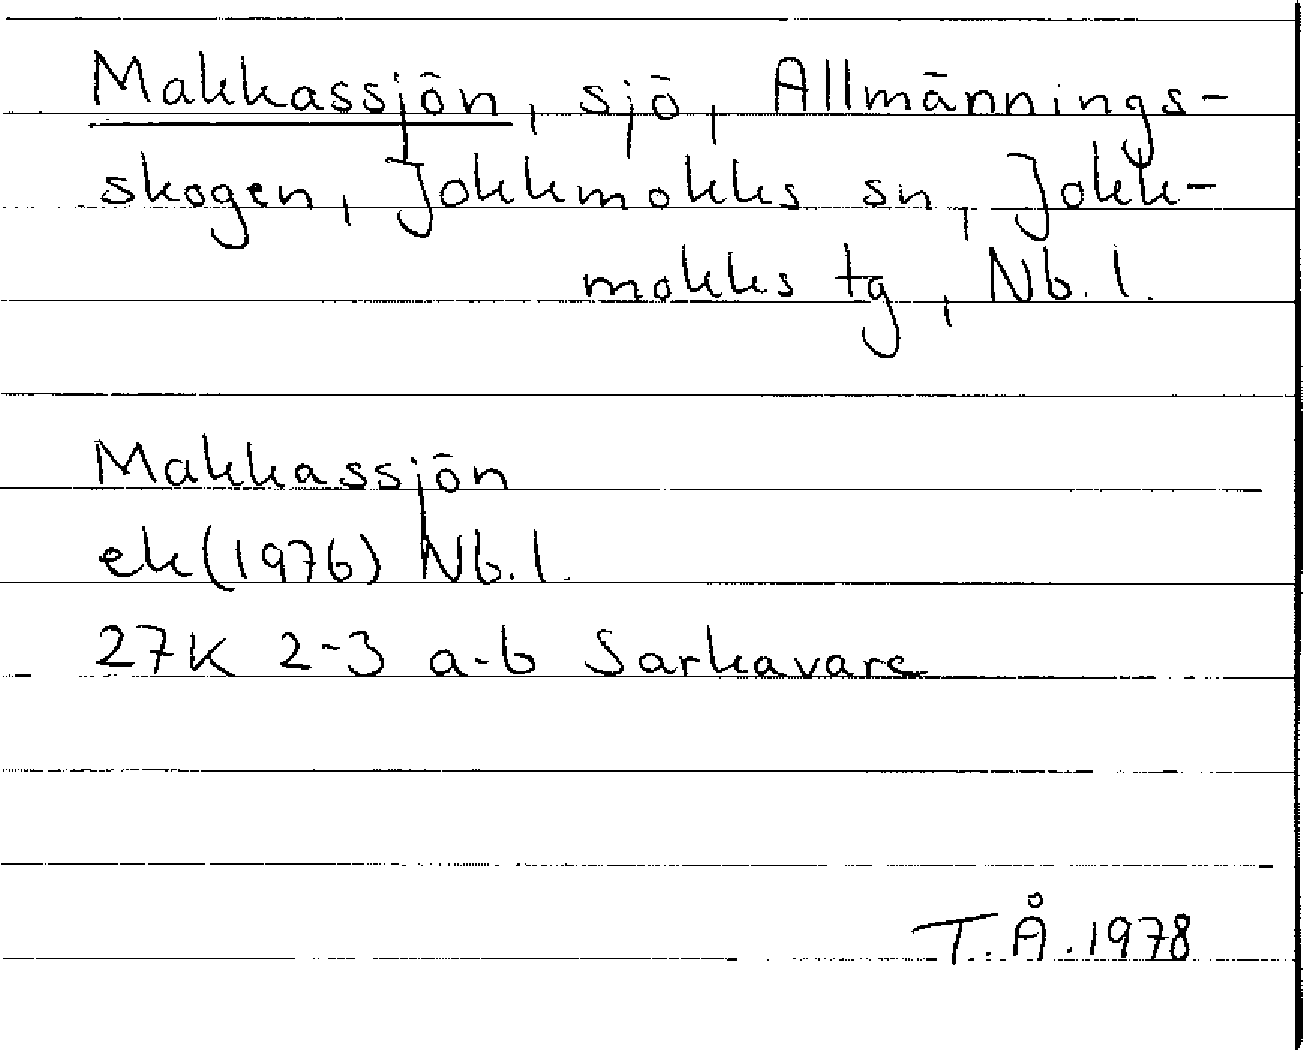 Makkassjön, sjö, Allmännings-
skogen, Jokkmokks sn, Jokk-
mokks tg, Nb. l.
Makkassjön
ek (1976) Nb. l.
27K 2-3 a-b Sarkavare
T. Å. 1978